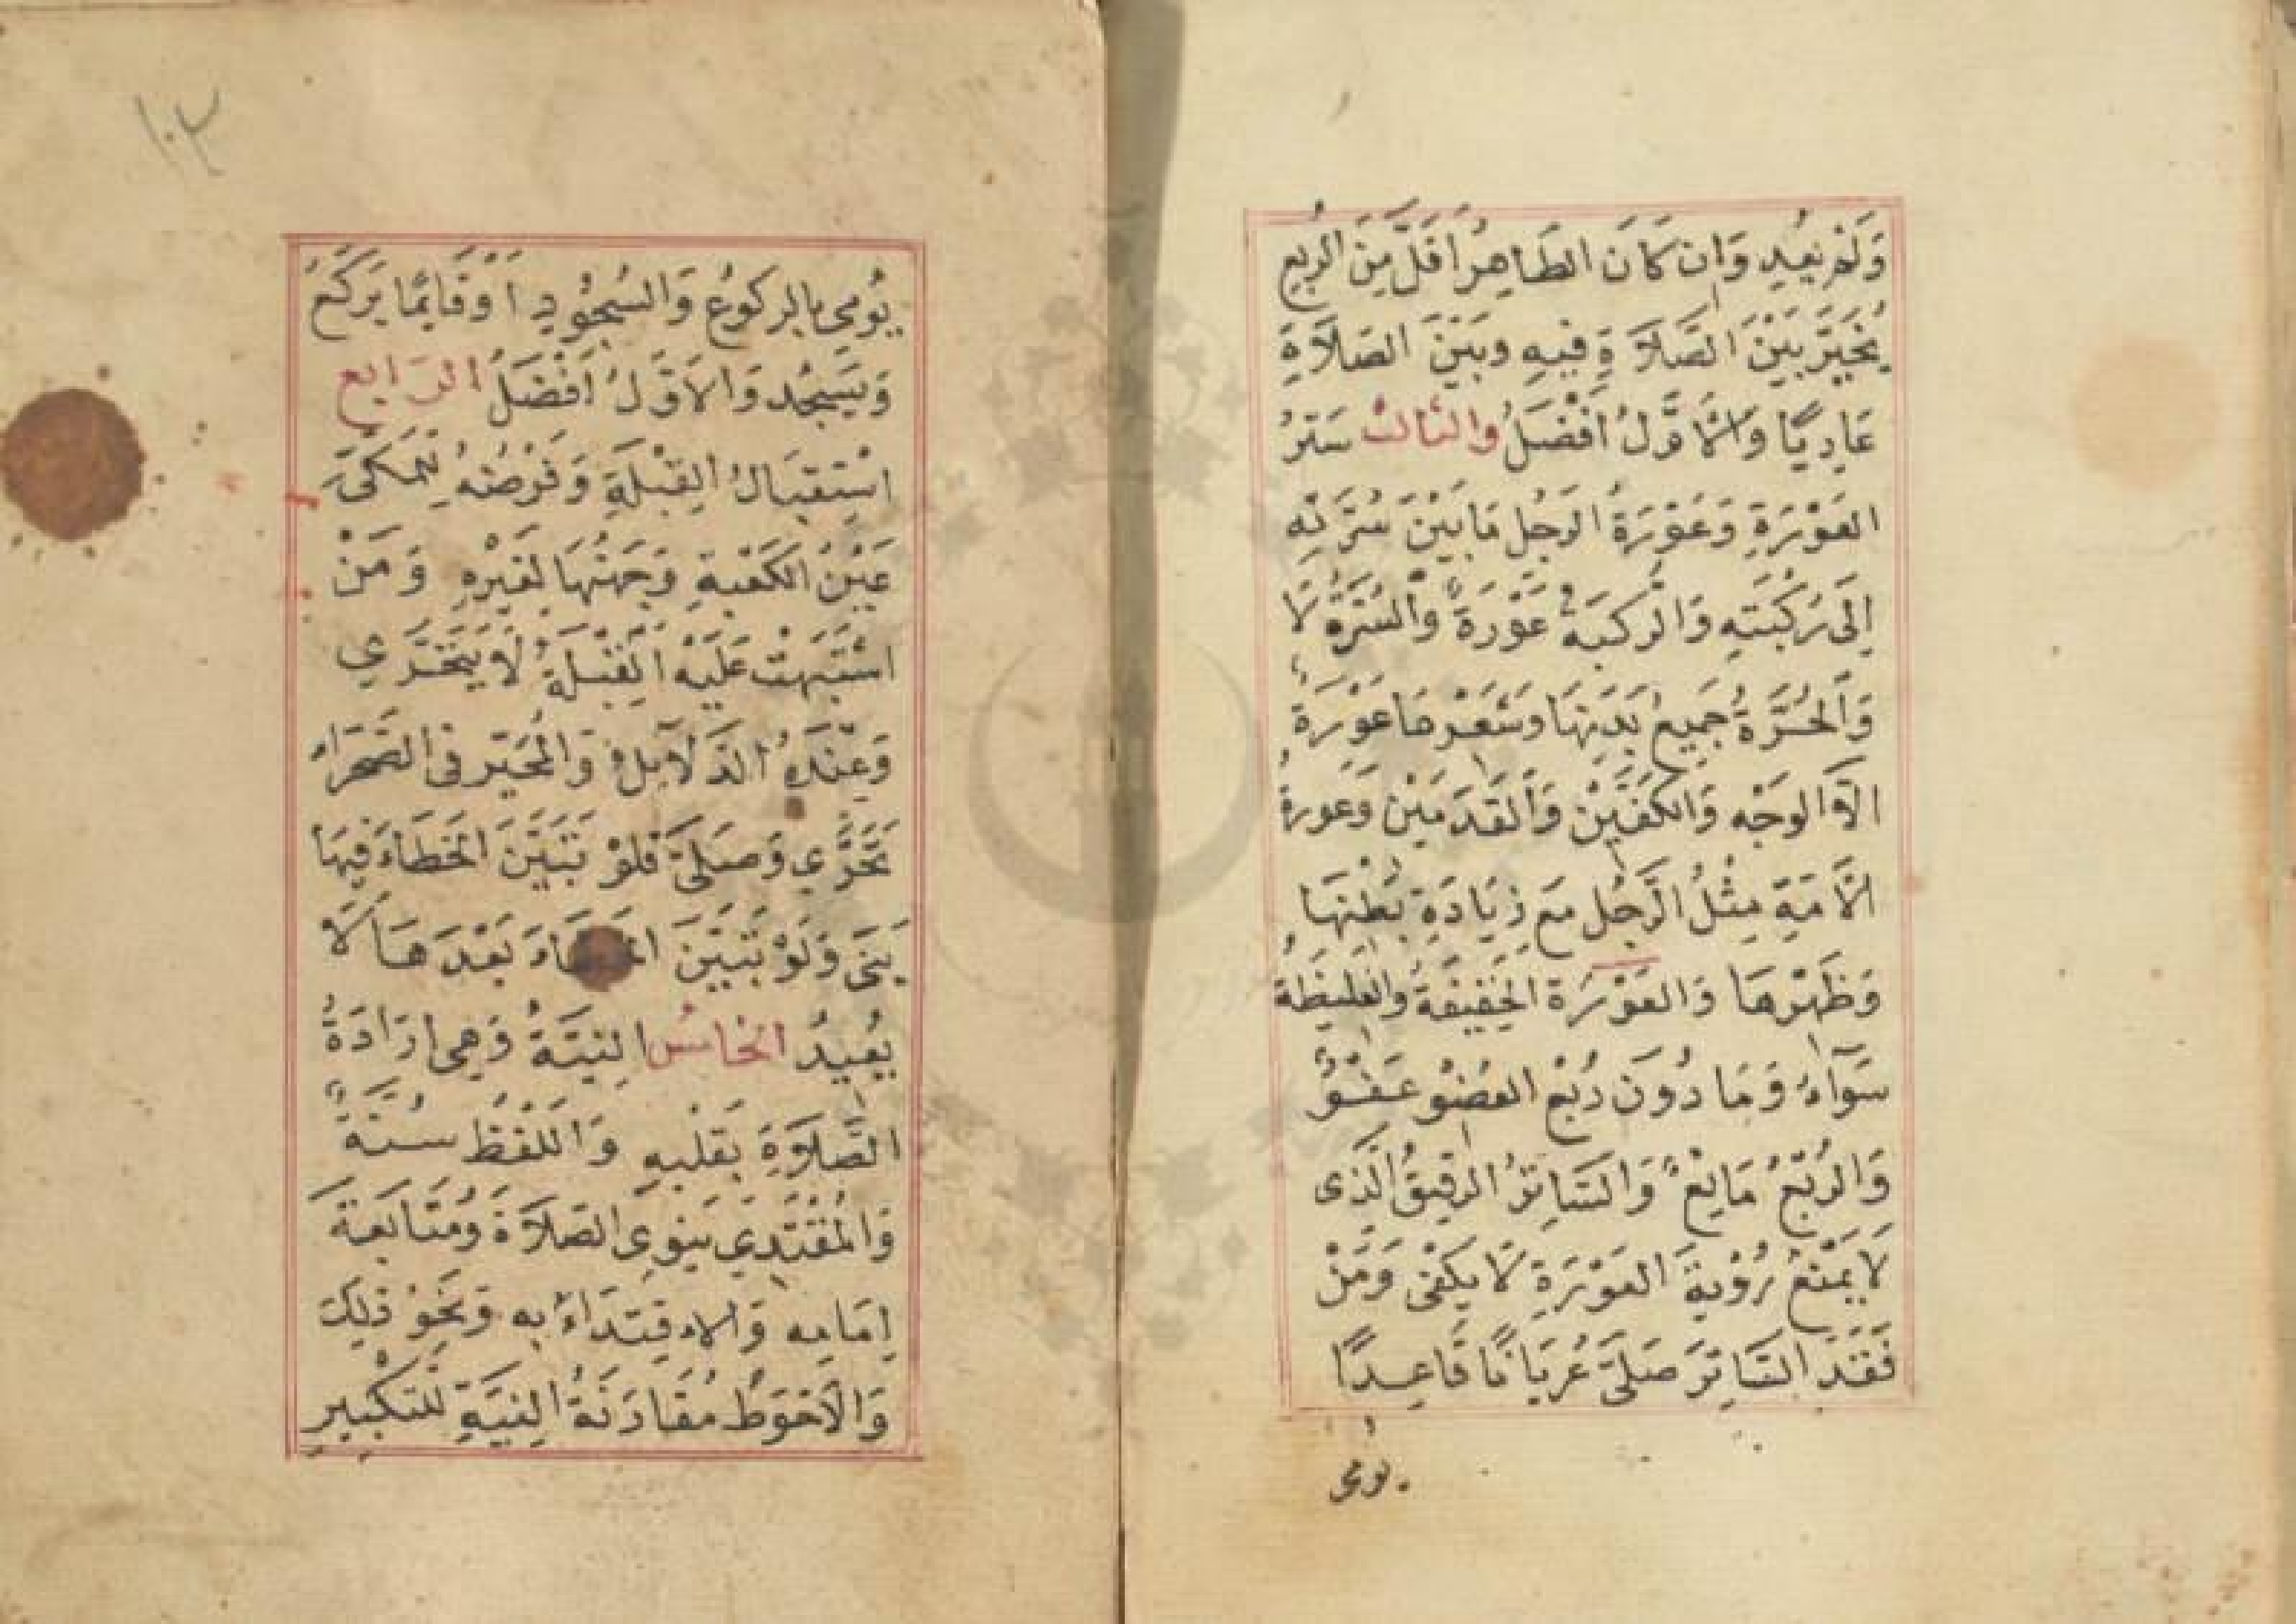 وَلَمْ يُعِيدِ وَاِن كَانَ الطَاهِرُ اَقَلَّ مِنَ الرُبعِ
يُخَيَّرَ بَيْنَ الصَّلَاوَةِ فِيهِ وَبَيْنَ الصَلَاةِ
عَارِيًا وَالْأَوَّلُ اَفْضَلُ وَالثَالثُ سَترُ
العَوْرَةِ وَعَوْرَةُ الرَجُلِ مَا بَيْنَ سُرَّتِهِ
اِلَى رَكْبَتِهِ وَالرُكبَةُ عَوْرَةً وَالسُرَّةُ لَا
وَالحُرَّةُ جَمِيعُ بَدَنِهَا وَشَعْرِهَا عَوْرَةُ
الاَّ الوَجْهِ وَالكَفَّيْنِ وَالقَدَمَيْنِ وَعَورةُ
الاَمَةِ مِثْلُ الرَّجُلِ مَعَ زِيَادَةِ بَطْنِهَا
وَظَهْرِهَا وَالعَوْرَةِ الخَفِيفَةُ وَالغَلِيظَةُ
سَوَآءُ وَمَا دُونَ رُبْعِ العُضْوِ عَفْوٌ
وَالرُبْعُ مَانِعٌ وَالسَاتِرُ الرَقِيقُ الَّذِى
لَا يَمْنَعُ رُؤْيةَ العَوْرَةِ لَا يَكْفِى وَمَنْ
فَقَدَ السَاتِرَ صَلَّى عُريَانًا قَاعِدًا
يومى
١٠٣
يُومِى بِالرُكوُعِ وَالسُجُوُدِ اَوْ قَايمًا يَركَعُ
وَيَسْجُد وَالاَوَّلُ اَفْضَلُ الرَابِع
اسْتِقبَالُ القِبْلَةِ وَفَرْضُهُ لِمَكِىّ
عَيْنُ الكَعْبةِ وَجَهَتُهَا لِغَيْرِهِ وَمَنْ
اشْتَبَهَتْ عَلَيْهِ القِبْلَةُ لَا يَتَحَرَّي
وَعِنْدَهُ الدَلَايلُ وَالمُخَيّر فى الصَحْرَاءِ
تَحَرَّي وَصَلَّى فَلَوْ تَبَيَّنَ الخَطَاءَ فِيهَا
يَبنَى وَلَوْ تَبَيَّنَ الخَطَاءَ بَعْدَهَا لَا
يُعِيدُ الخَامسُ النِيَّةُ وَهِى اِرَادَةُ
الصَّلَاوَةِ بِقَلْبِهِ وَاللفْظُ سُنَّةً
وَالمُقْتَدِي يَنوِى الصَلاَوَةَ وَمُتَابَعَةَ
اِمَامِهِ وَالاِقتِدَاءَ بِهِ وَنَحِوُ ذَلِكَ
وَالاَحْوَطُ مُقَارَنَةُ النِيَّةِ لِلتكْبِيرِ